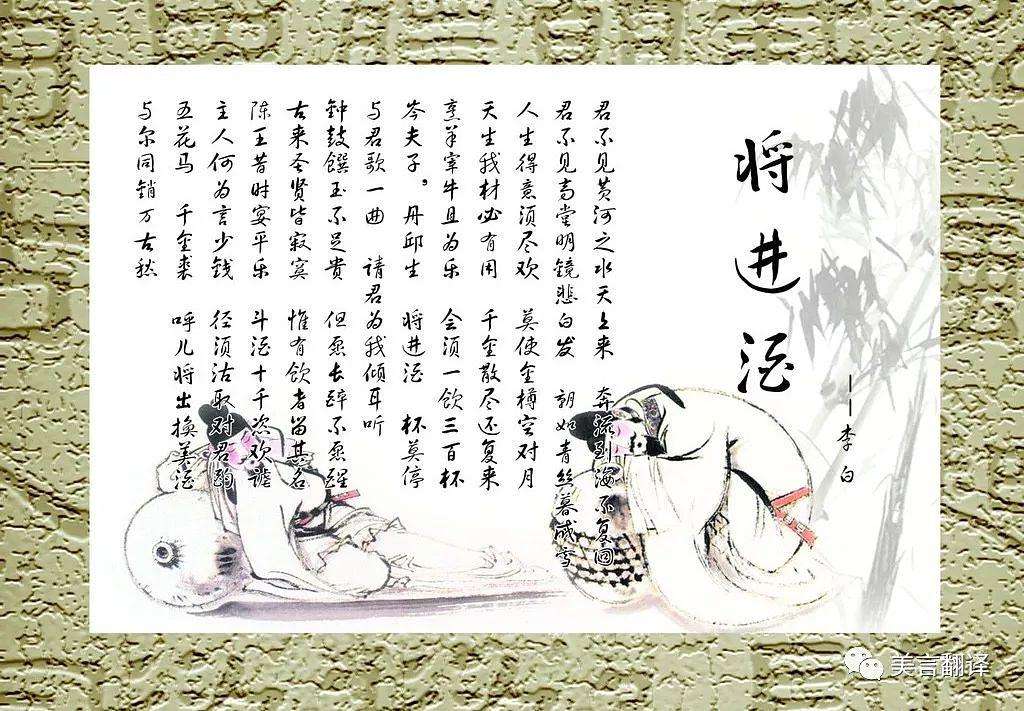 将进酒
——李白
君不见黄河之水天上来 奔流到海不复回
君不见高堂明镜悲白发 朝如青丝暮成雪
人生得意须尽欢 莫使金樽空对月
天生我材必有用 千金散尽还复来
烹羊宰牛且为乐 会须一饮三百杯
岑夫子，丹邱生 将进酒 杯莫停
与君歌一曲 请君为我倾耳听
钟鼓馔玉不足贵 但愿长醉不愿醒
古来圣贤皆寂寞 惟有饮者留其名
陈王昔时宴平乐 斗酒十千恣欢谑
主人何为言少钱 径须沽取对君酌
五花马 千金裘 呼儿将出换美酒
与尔同销万古愁
美言翻译